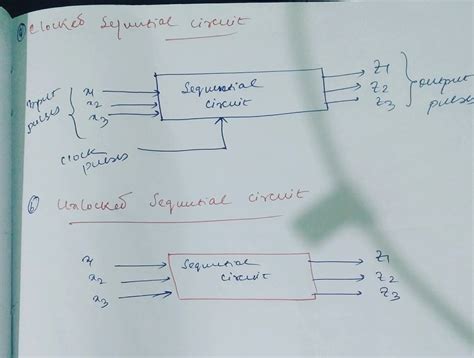 ⓐ Clocked Sequential Circuit
Input pulses
x1
x2
x3
Sequential circuit
Z1
Z2
Z3
output pulses
clock pulses
ⓑ Unlocked Sequential Circuit
x1
x2
x3
Sequential circuit
Z1
Z2
Z3